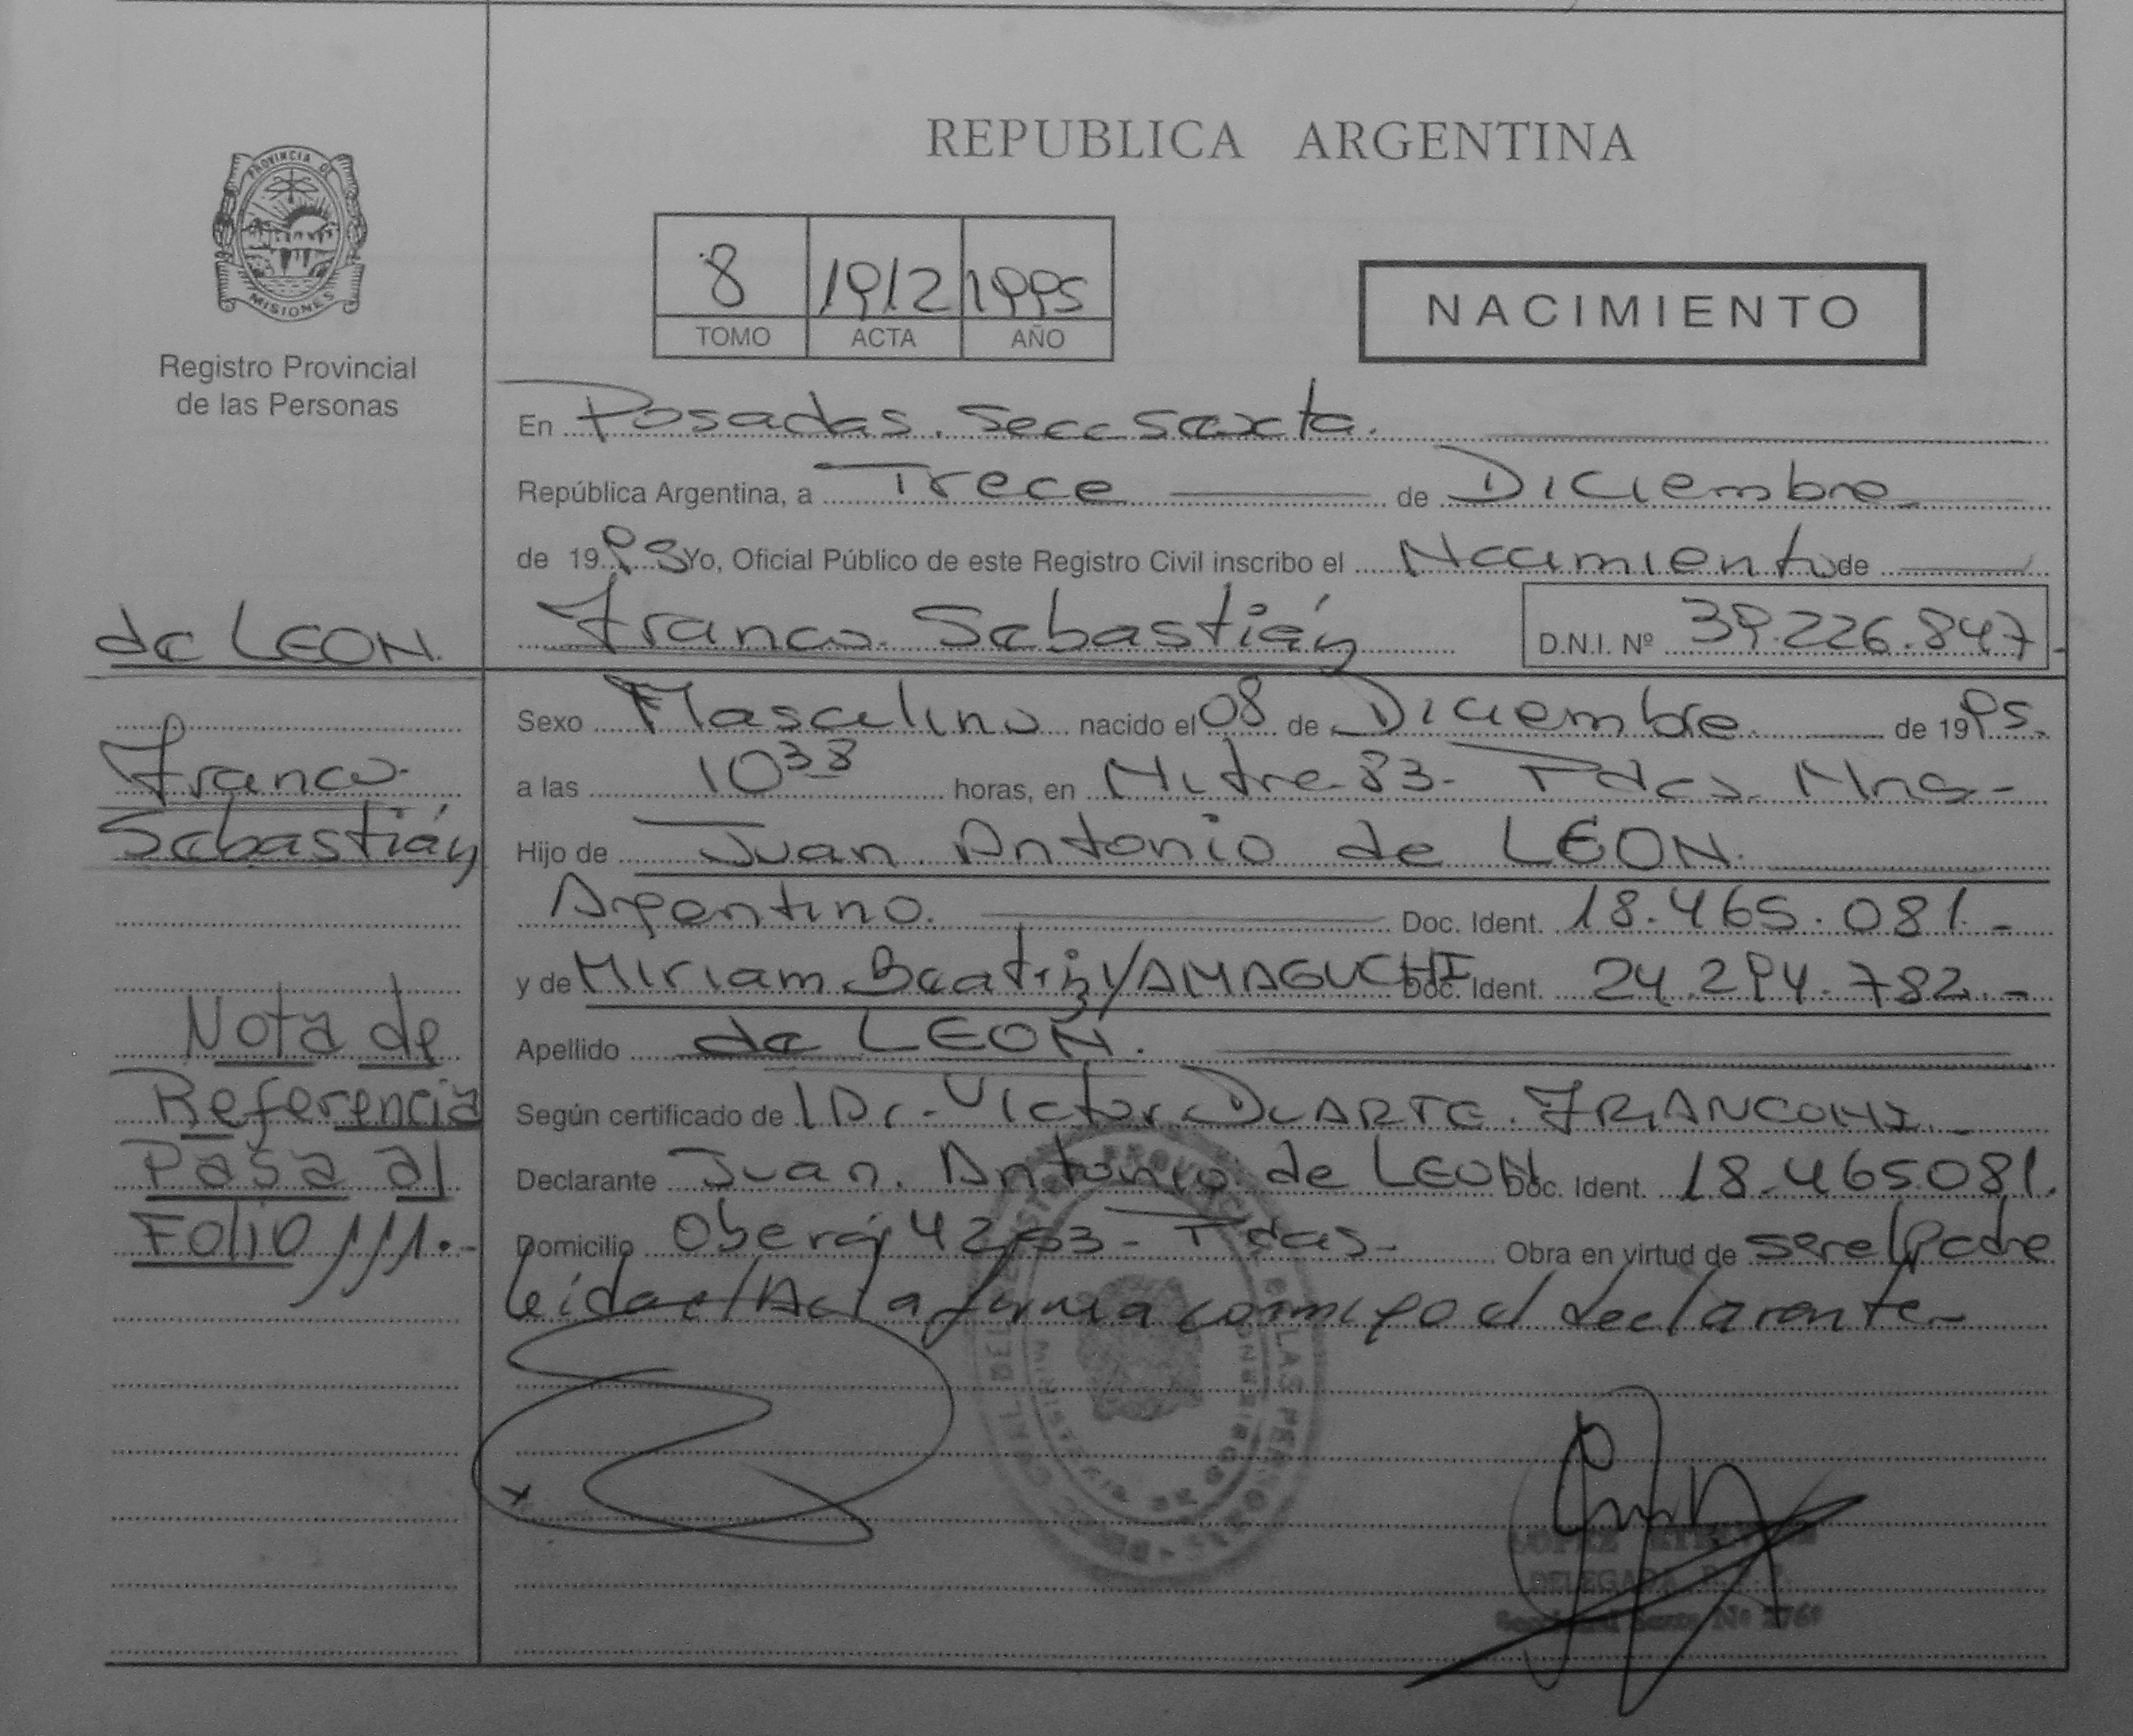 PROVINCIA DE
MISIONES
Registro Provincial
de las Personas
REPUBLICA ARGENTINA
8 1912 1995
TOMO ACTA AÑO
NACIMIENTO
En Posadas. Secc sexta.
República Argentina, a Trece de Diciembre
de 1995 Yo, Oficial Público de este Registro Civil inscribo el Nacimiento de
Franco Sebastián D.N.I. Nº 39.226.847
de LEON
Franco
Sebastián
Sexo Masculino nacido el 08 de Diciembre de 1995.
a las 10 38 horas, en Mitre 83 - Pdas. Mns.-
Hijo de Juan Antonio de LEON.
Argentino. Doc. Ident. 18.465.081.-
y de Miriam Beatriz YAMAGUCHI Doc. Ident. 24.294.782.-
Apellido de LEON.
Según certificado de Dr. Victor DUARTE FRANCONI
Declarante Juan Antonio de LEON Doc. Ident. 18.465081.
Domicilio Oberá 4263 - Pdas- Obra en virtud de ser el Padre
Leída el Acta firma conmigo el declarante-
Nota de
Referencia
Pasa al
Folio ///.-
LOPEZ
DELEGADA